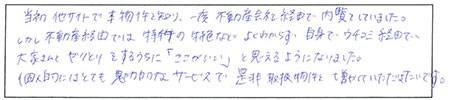 当初 他サイトで本物件を知り、一度 不動産会社経由で内覧をしていました。
しかし不動産経由では 特件の特色など、よくわからず、自身で ウチコミ経由で、
大家さんと やりとりをするうちに 「ここがいい」と思えるようになりました。
個人的にはとても 魅力的なサービスで 是非 取扱物件を増やしていただきたいです。